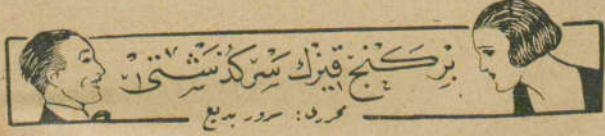 بر كنج قيزك سركذشتی
محرری: سرور بديع